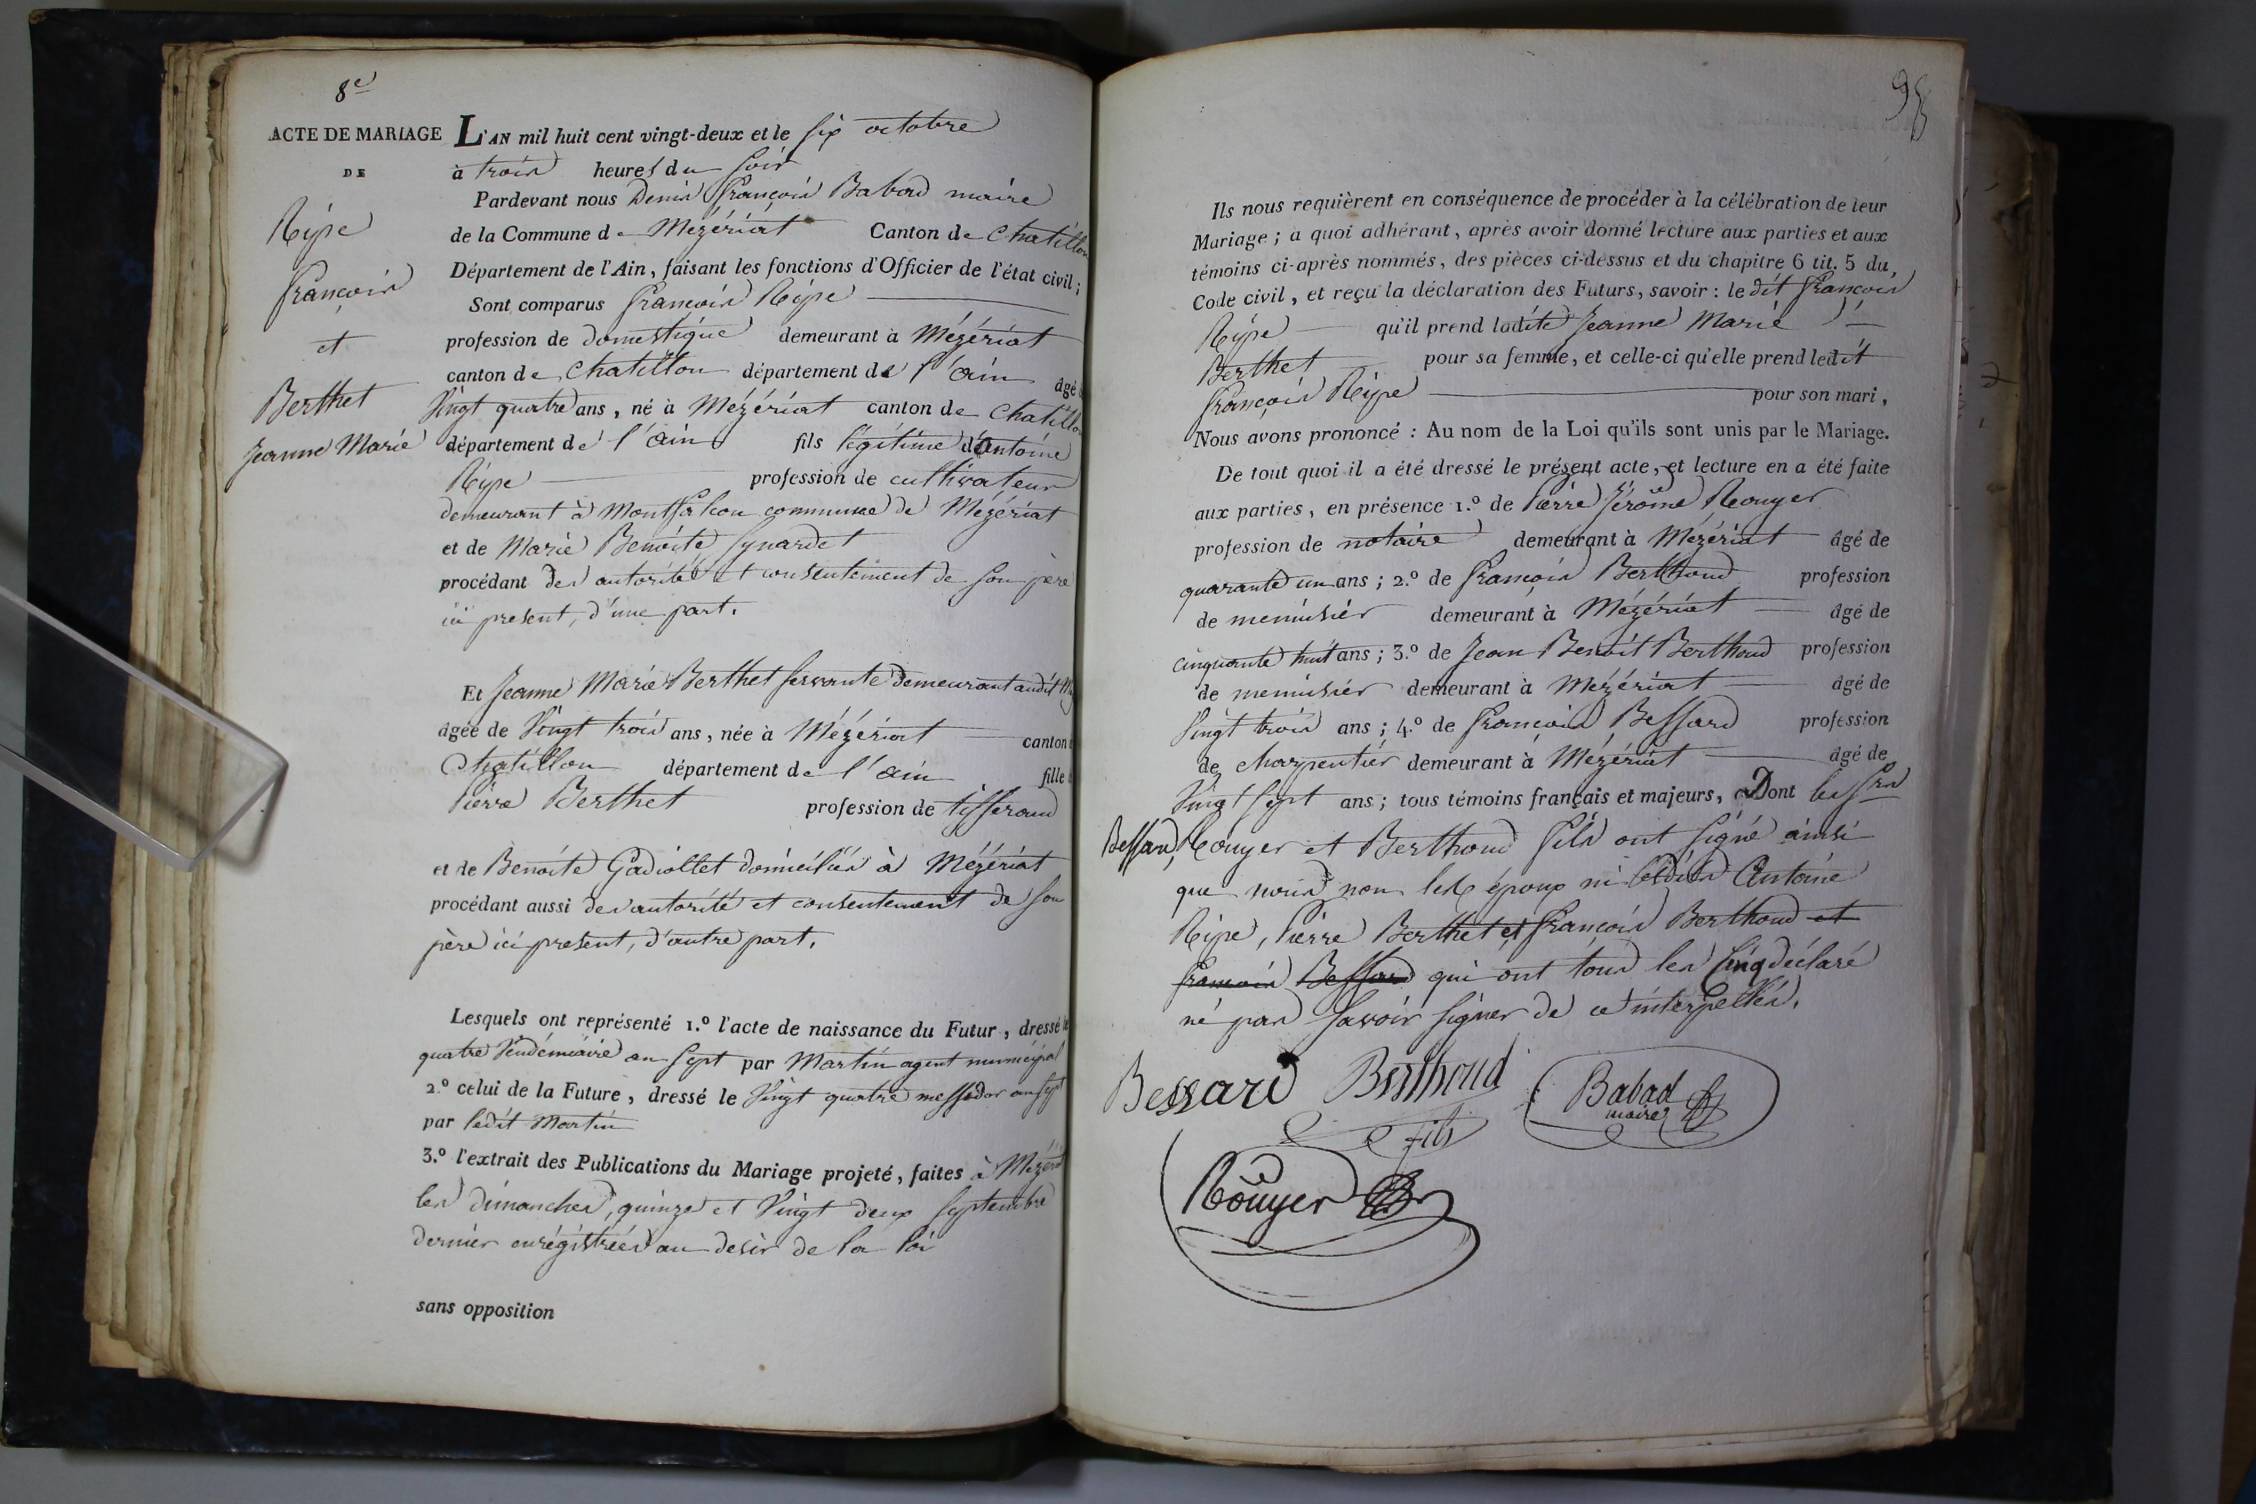 8e
ACTE DE MARIAGE
DE
Ripe
françois
et
Berthet
Jeanne Marie
L'AN mil huit cent vingt-deux et le six octobre
à trois heures du soir
Pardevant nous Denis françois Babad maire
de la Commune de Mézériat Canton de Chatillon
Département de l'Ain, faisant les fonctions d'Officier de l'état civil;
Sont comparus françois Ripe
profession de domestique demeurant à Mézériat
canton de Chatillon département de l'ain âgé
Vingt quatre ans, né à Mézériat canton de Chatillon
département de l'ain fils légitime d'Antoine
Ripe profession de cultivateur
demeurant à Montfalcon commune de Mézériat
et de Marie Benoite
procédant des autorité et consentement de son père
ici present, d'une part.
Et Jeanne Marie Berthet servante demeurant audit
âgée de Vingt trois ans, née à Mézériat canton
Chatillon département de l'ain fille
Pierre Berthet profession de tisserand
et de Benoite Gadiollet domiciliés à Mézériat
procédant aussi des autorité et consentement de son
père ici present, d'autre part.
Lesquels ont représenté 1.º l'acte de naissance du Futur, dressé le
quatre Vendémiaire an sept par Martin agent municipal
2.º celui de la Future, dressé le Vingt quatre messidor an sept
par ledit Martin
3.º l'extrait des Publications du Mariage projeté, faites à Mézériat
les dimanches, quinze et Vingt deux septembre
dernier enrégistrées au desir de la loi
sans opposition
Ils nous requièrent en conséquence de procéder à la célébration de leur
Mariage; a quoi adhérant, après avoir donné lecture aux parties et aux
témoins ci-après nommés, des pièces ci-dessus et du chapitre 6 tit. 5 du
Code civil, et reçu la déclaration des Futurs, savoir: le dit françois
Ripe qu'il prend ladite Jeanne Marie
Berthet pour sa femme, et celle-ci qu'elle prend ledit
françois Ripe pour son mari,
Nous avons prononcé: Au nom de la Loi qu'ils sont unis par le Mariage.
De tout quoi il a été dressé le présent acte, et lecture en a été faite
aux parties, en présence 1.º de Pierre Jérôme Rouyer
profession de notaire demeurant à Mézériat âgé de
quarante un ans; 2.º de françois Berthoud profession
de menuisier demeurant à Mézériat âgé de
cinquante huit ans; 3.º de Jean Benoit Berthoud profession
de menuisier demeurant à Mézériat âgé de
Vingt trois ans; 4.º de françois Bessard profession
de charpentier demeurant à Mézériat âgé de
Vingt sept ans; tous témoins français et majeurs, Dont les
Bessard, Rouyer et Berthoud fils ont signé ainsi
que nous non les époux ni lesdits Antoine
Ripe, Pierre Berthet et françois Berthoud et
françois Bessard qui ont tous les Cinq déclaré
ne pas savoir signer de ce interpellés.
Bessard Berthoud fils Babad
maire
Rouyer